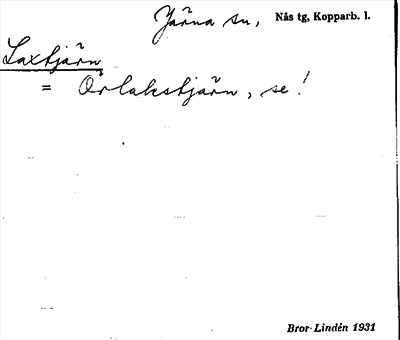 Järna sn, Nås tg, Kopparb. l.
Laxtjärn
= Örlakstjärn, se!
Bror Lindén 1931